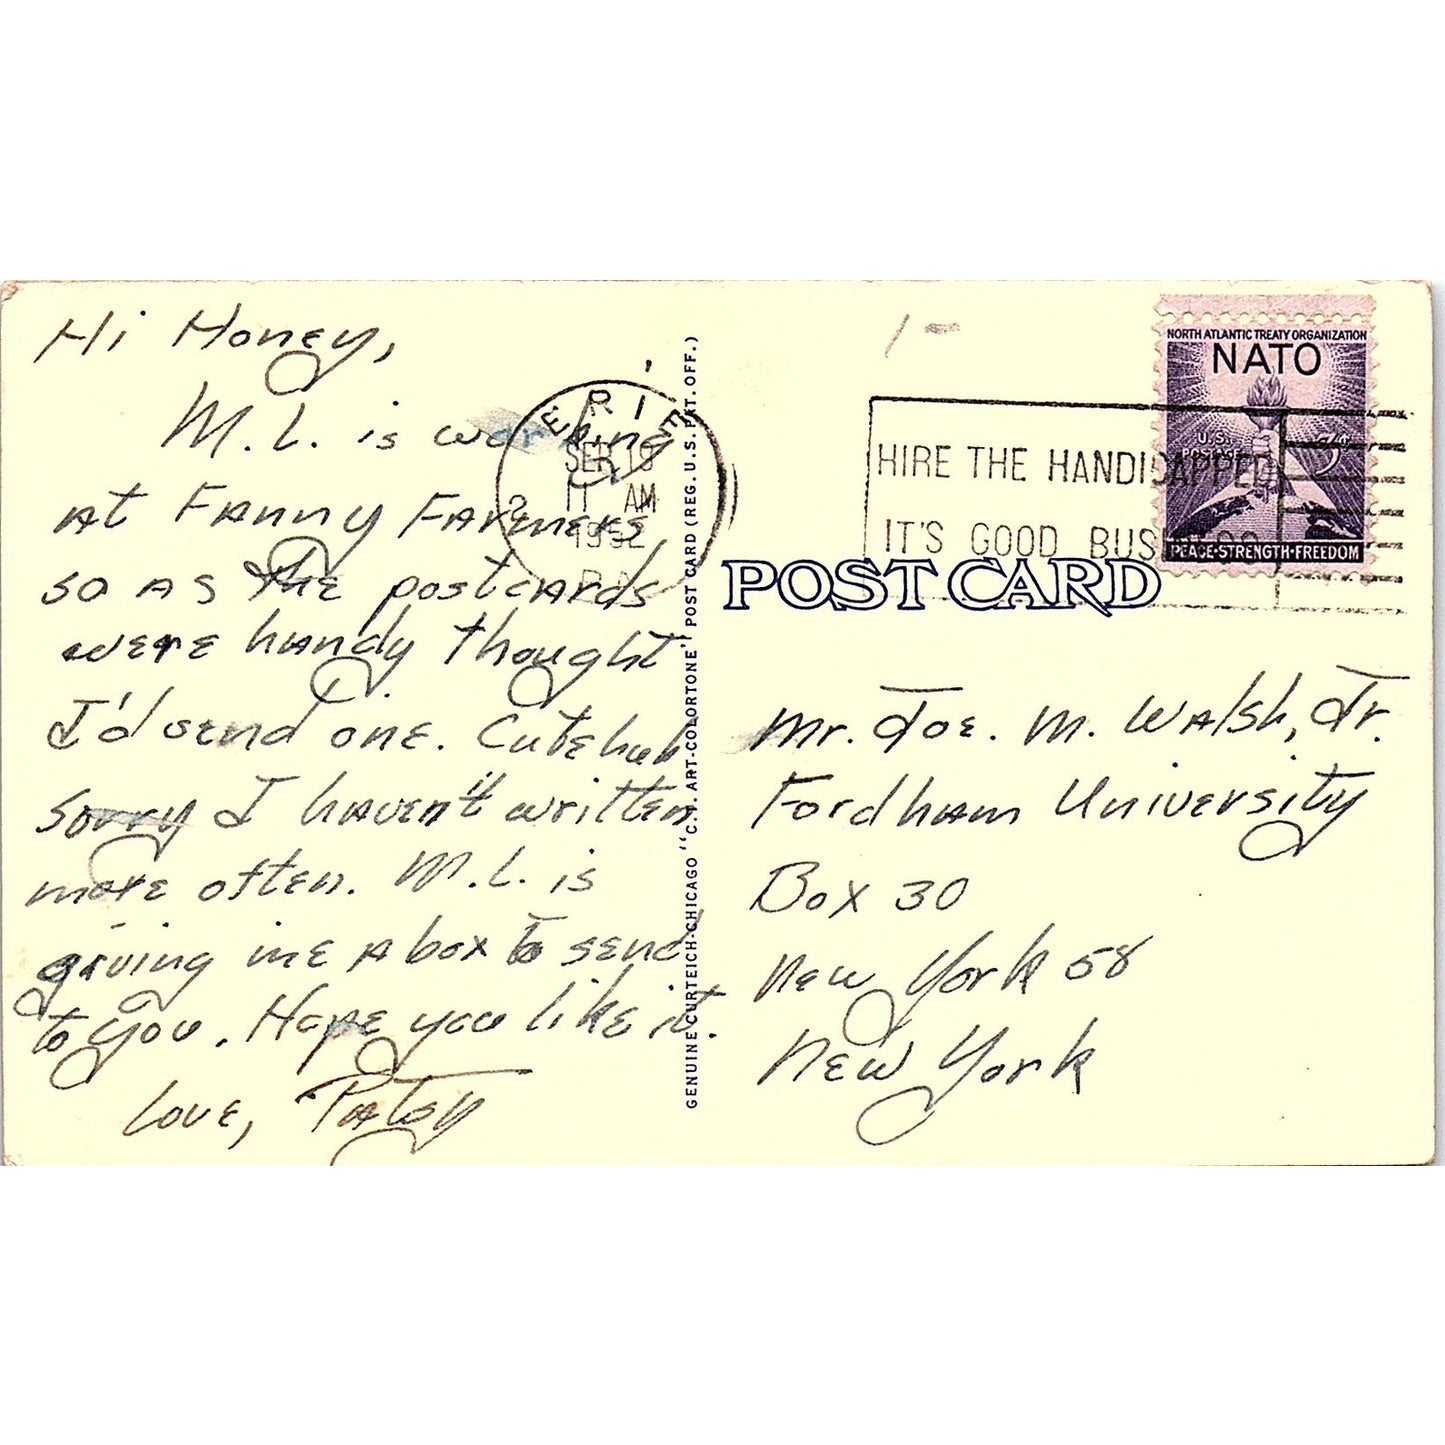 Hi Honey,
M.L. is working
at Fanny Farmers
so as the postcards
were handy thought
I'd send one. Cutehub
sorry I haven't written
more often. M.L. is
giving me a box to send
to you. Hope you like it.
Love, Patsy
ERIE
SEP 19
11 AM
1952
PA
GENUINE CURTEICH-CHICAGO "C.T. ART-COLORTONE" POST CARD (REG. U.S. PAT. OFF.)
1-
NORTH ATLANTIC TREATY ORGANIZATION
NATO
U.S. POSTAGE 3¢
PEACE·STRENGTH·FREEDOM
HIRE THE HANDICAPPED
IT'S GOOD BUSINESS
POST CARD
Mr. Joe. M. Walsh, Jr.
Fordham University
Box 30
New York 58
New York